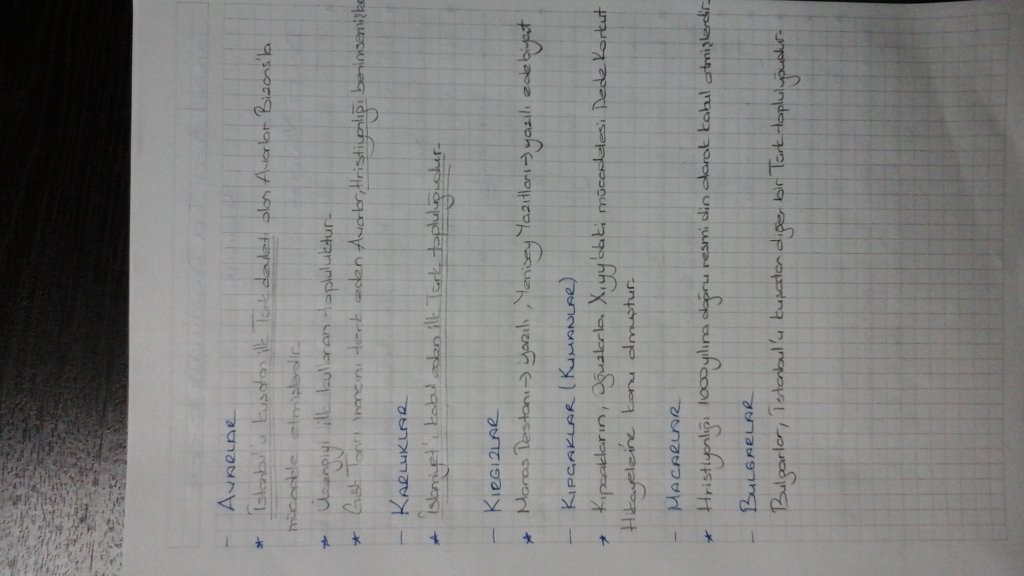 - AVARLAR
* İstanbul'u kuşatan ilk Türk devleti olan Avarlar Bizans'la
mücadele etmişlerdir.
* Üzengiyi ilk kullanan topluluktur.
* Gök Tanrı inancını terk eden Avarlar, Hristiyanlığı
- KARLUKLAR
* İslamiyet'i kabul eden ilk Türk topluluğudur.
- KIRGIZLAR
* Manas Destanı → yazılı, Yenisey Yazıtları → yazılı edebiyat
- KIPÇAKLAR (KUMANLAR)
* Kıpçakların, Oğuzlarla XI.yy'daki mücadelesi Dede Korkut
Hikayelerine konu olmuştur.
- MACARLAR
* Hristiyanlığı 1000 yılına doğru resmi din olarak kabul etmişlerdir.
- BULGARLAR
Bulgarlar, İstanbul'u kuşatan diğer bir Türk topluluğudur.